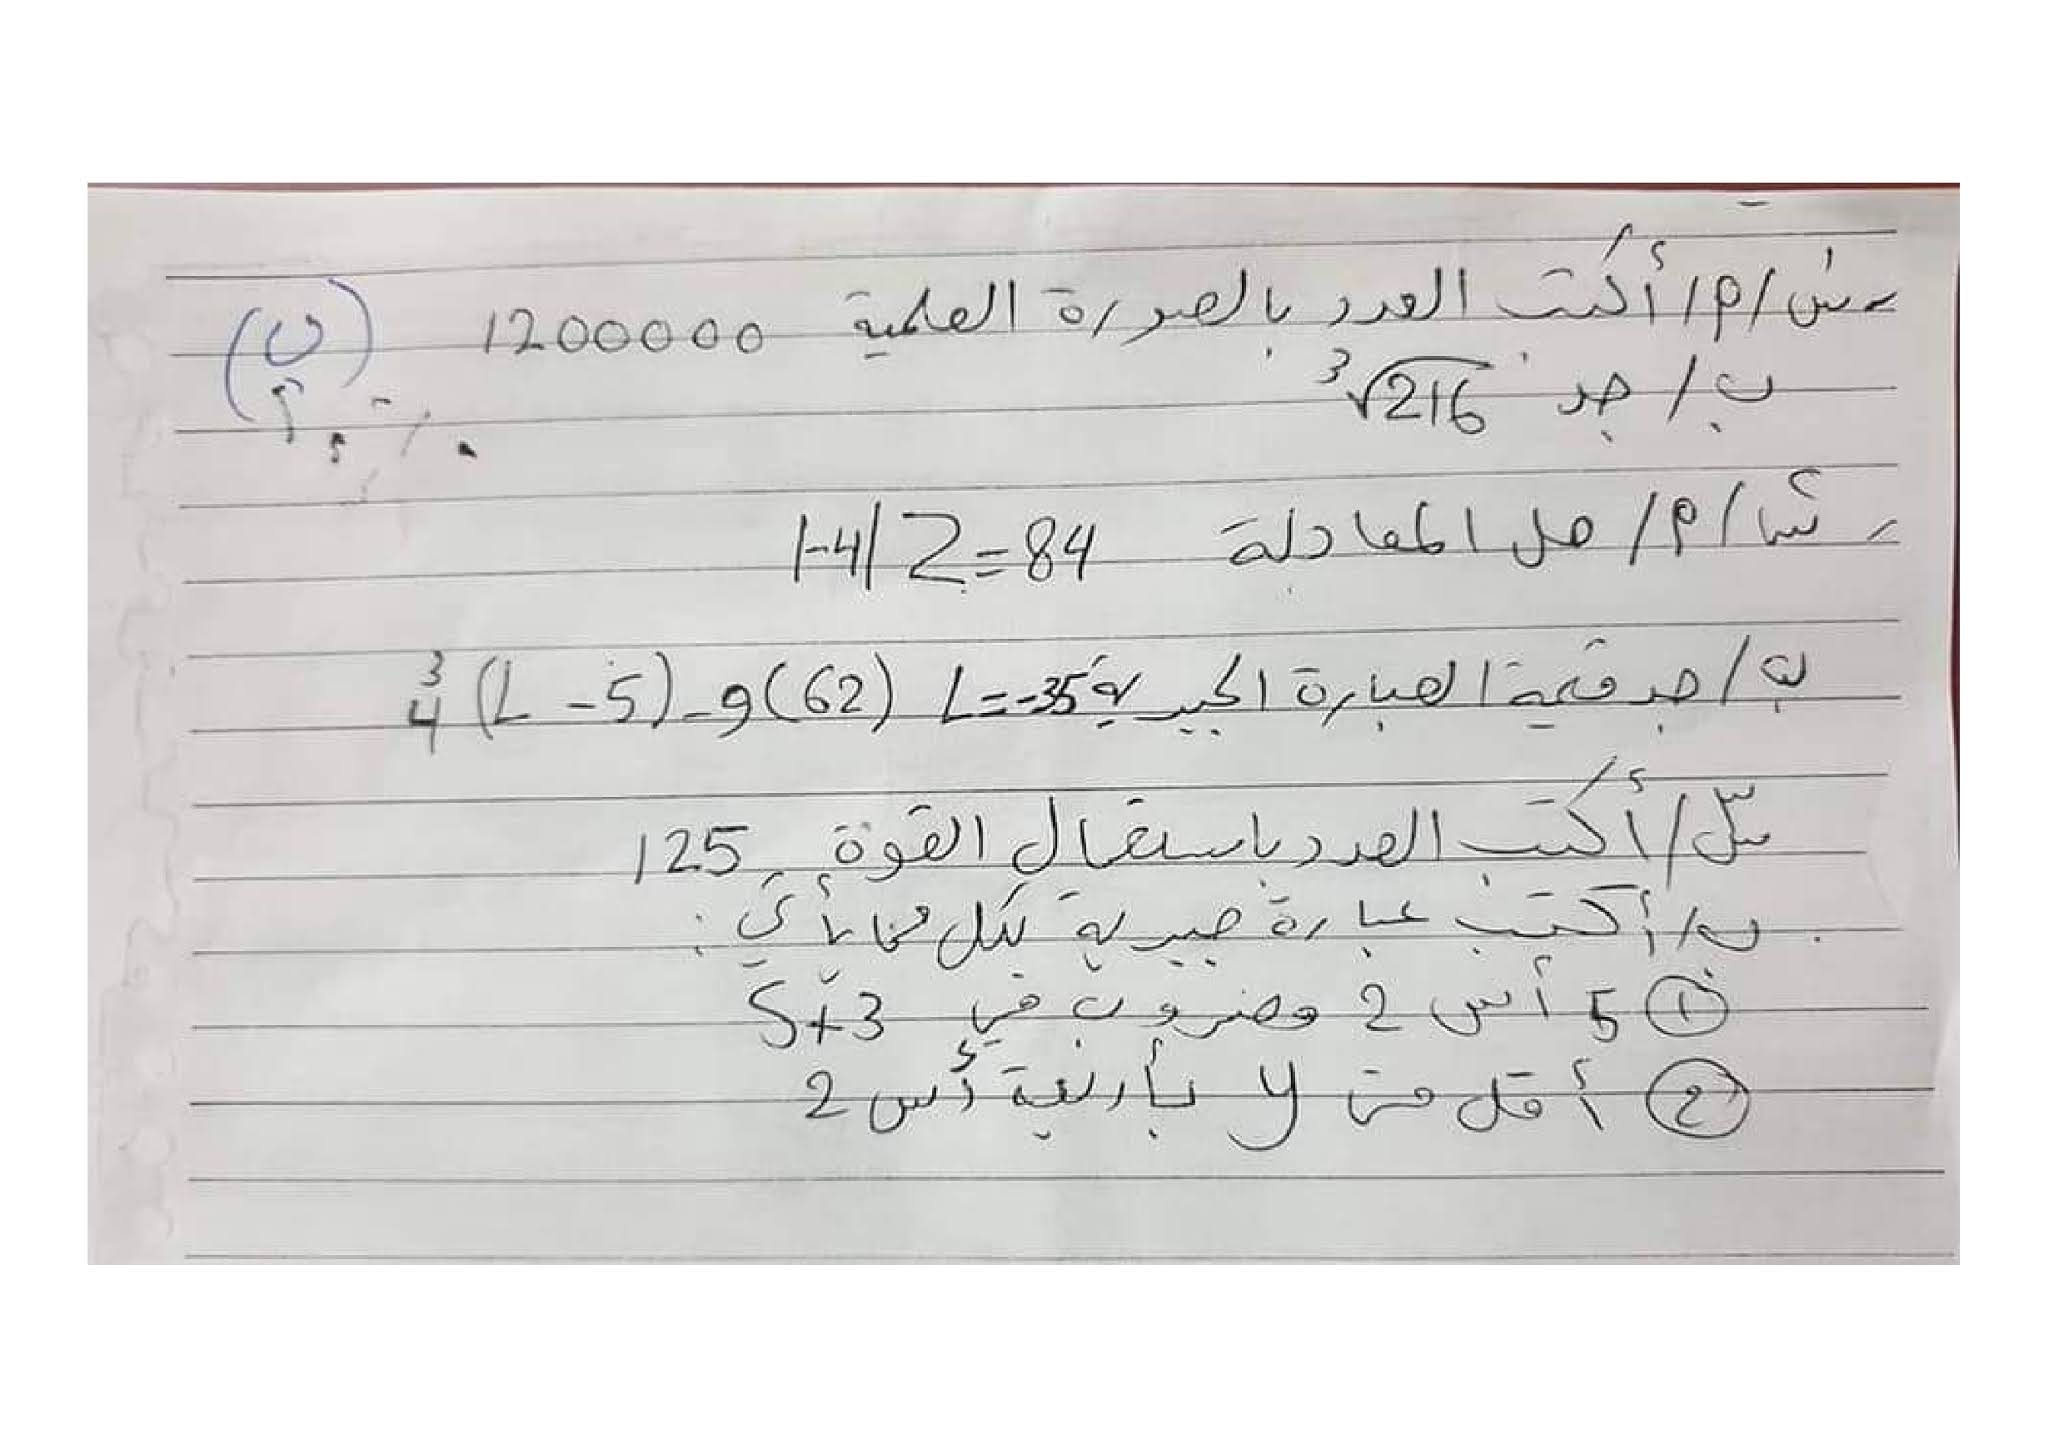 س١/م/أكتب العدد بالصورة العلمية 1200000 (ں)
ب/جد ³√216
س٢/م/حل المعادلة |-4| Z=84
ب/جد قيمة العبارة الجبرية L=-35 3/4 (L-5)-9(62)
س٣/أكتب العدد باستعمال القوة 125
ب/أكتب عبارة جبرية لكل مما يأتي:
① 5 أس 2 مضروب في S+3
② أقل من y بأربعة أس 2